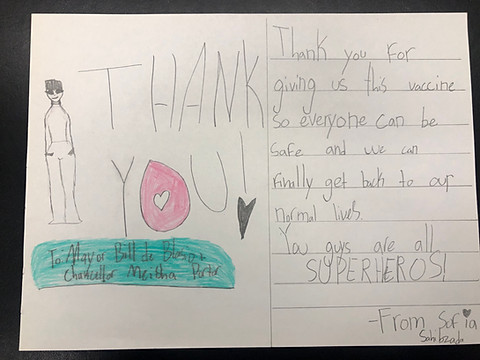 THANK
YOU!
To Mayor Bill de Blasio +
Chancellor Meisha Porter
Thank you for
giving us this vaccine
so everyone can be
safe and we can
finally get back to our
normal lives.
You guys are all
SUPERHEROS!
-From Sofia
Sahibzada